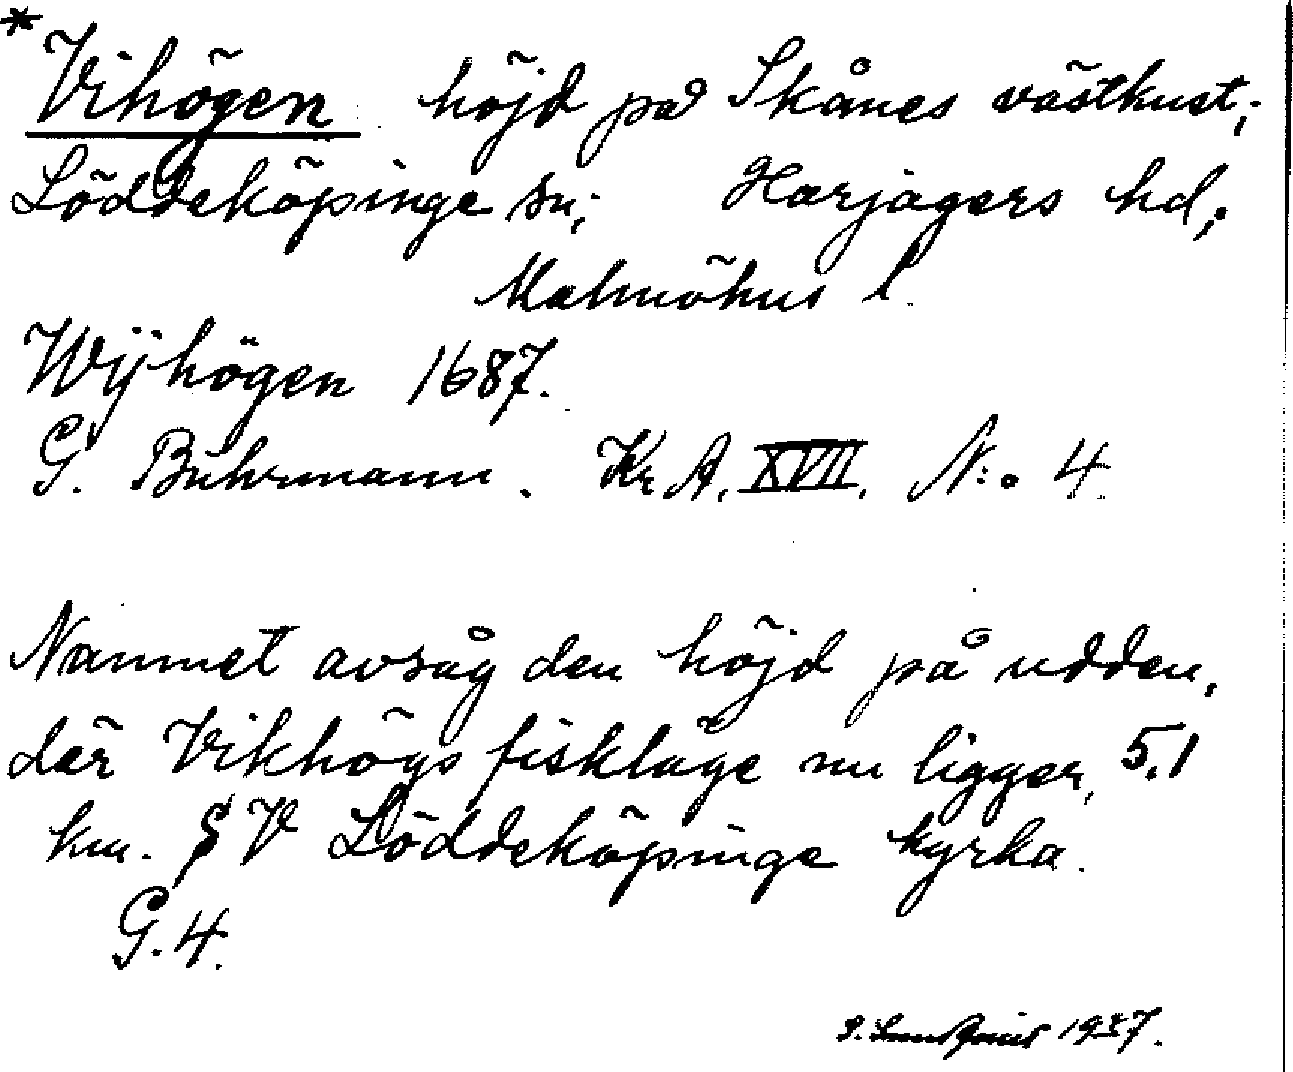 * Vihögen höjd på Skånes västkust;
Löddeköpinge sn; Harjagers hd;
Malmöhus l.
Wÿhögen 1687.
G. Buhrmann. Kr A. XVII. N:o 4.
Namnet avsåg den höjd på udden,
där Vikhögs fiskläge nu ligger, 5.1
km. V Löddeköpinge kyrka.
G. 4.